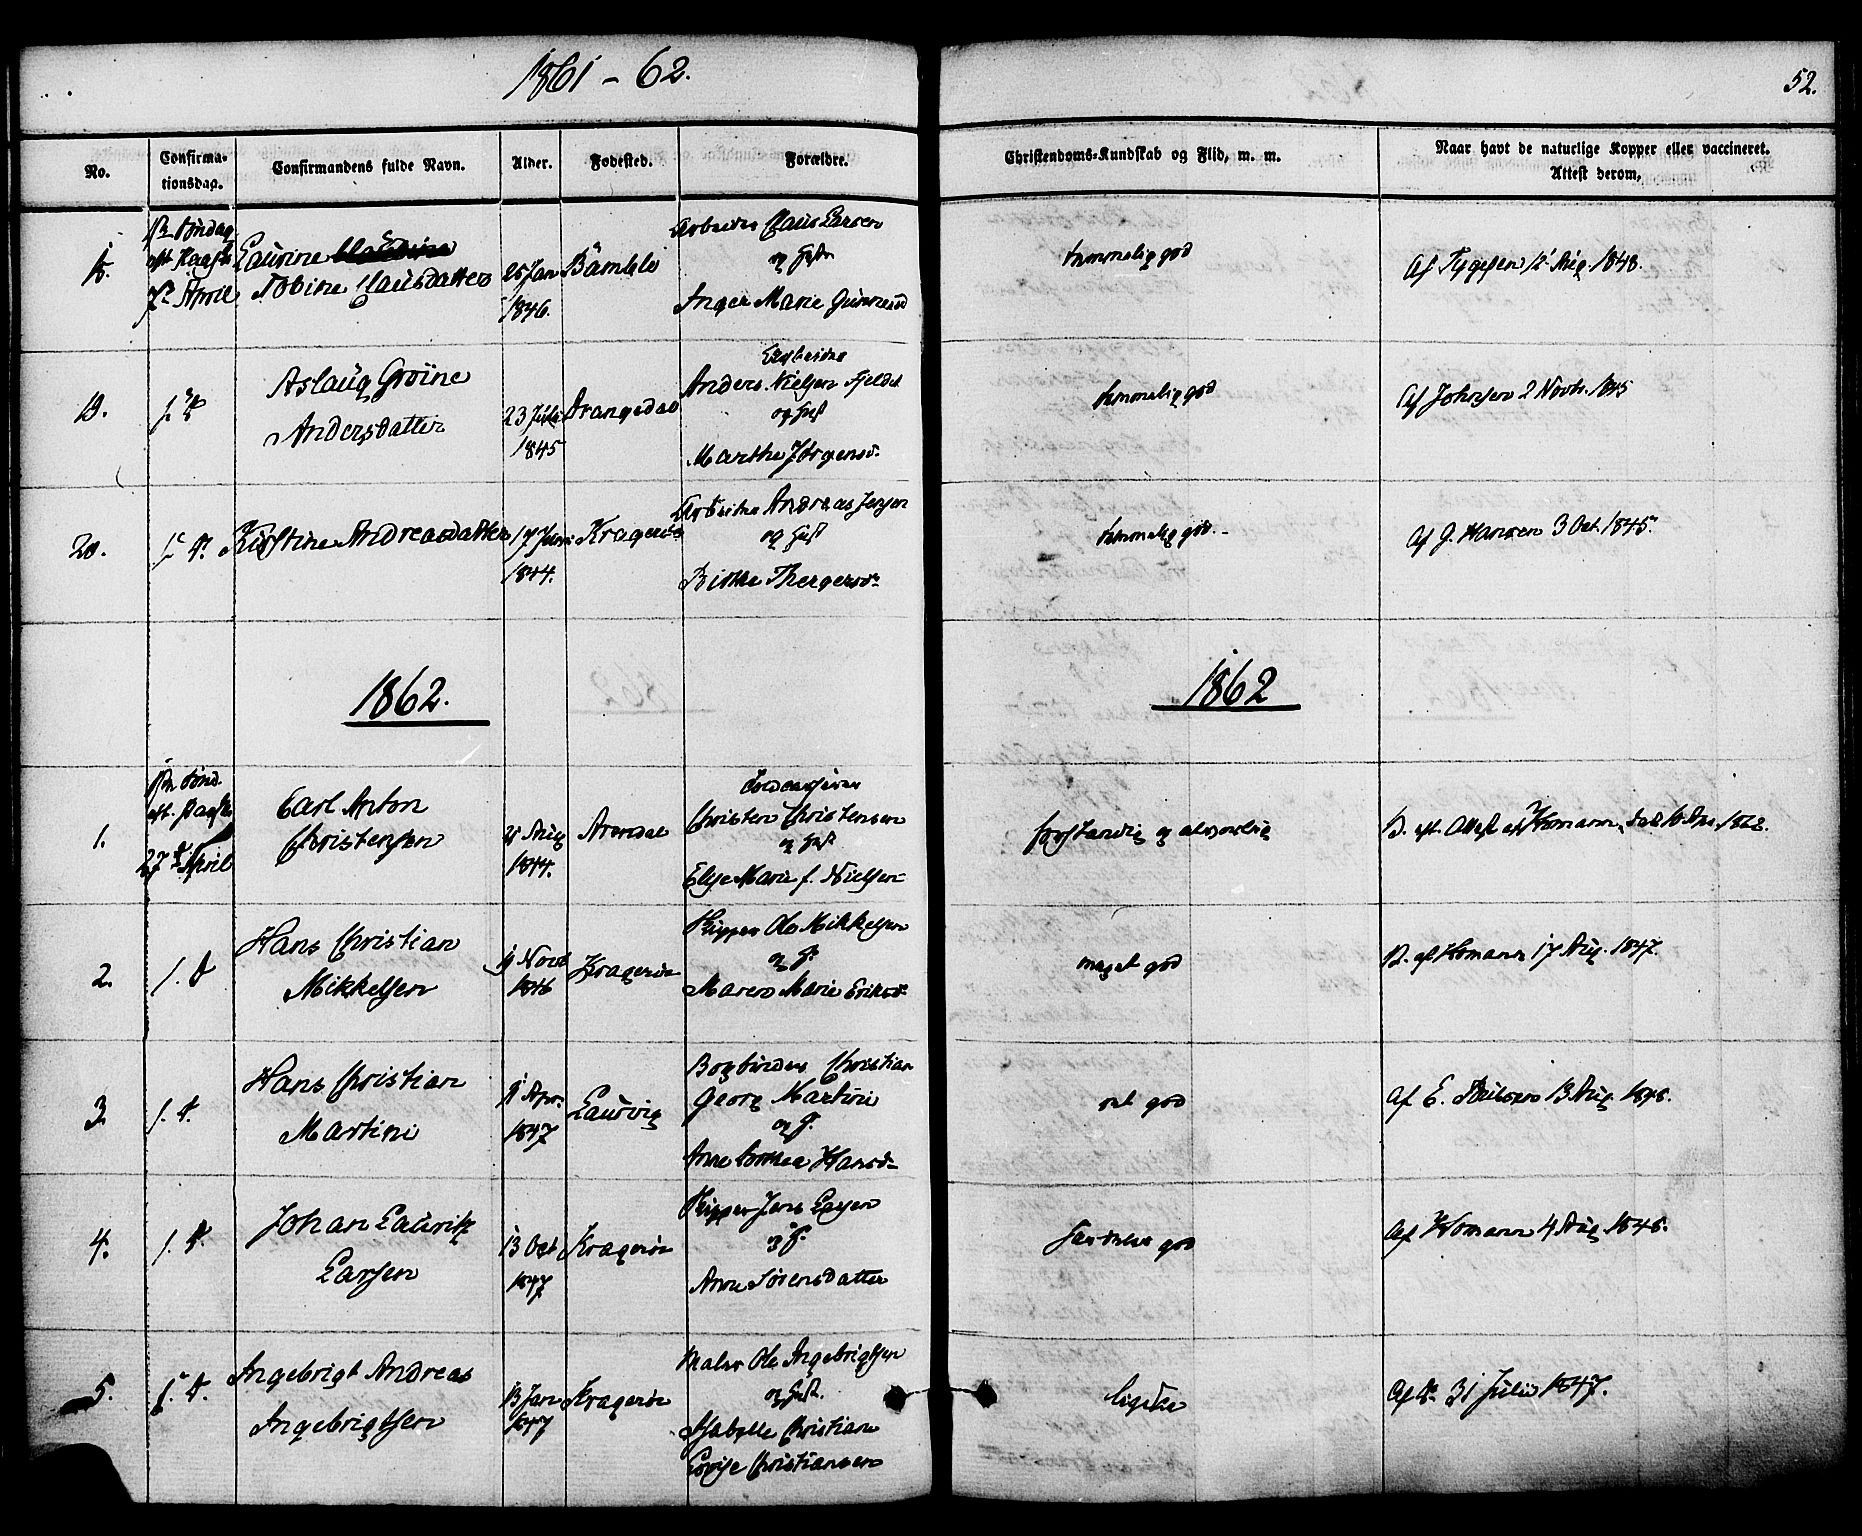 1861 - 62.
52.
No.
Confirma-
tionsdag.
Confirmandens fulde Navn.
Alder.
Fødested.
Forældre.
Christendoms-Kundskab og Flid, m. m.
Naar havt de naturlige Kopper eller vaccineret.
Attest derom,
1ste Søndag
eft. Paaske
7de April
Laurine
Tobine Clausdatter
25 Jan
1846.
Bamble
Arbeider Claus Larsen
og Hust
Inger Marie Gunnersd
temmelig god
Af Tygesen 12 Aug 1848.
19.
Aslaug Groine
Andersdatter
23
1845
Drangedal
Arbeider
Anders Nielsen Fjeldet
og Hust
Marthe Jørgensd.
temmelig god
Af Johnsen 2 Novbr. 1845
20.
Kirstine Andreasdatter
17
1844.
Kragerøe
Arbeider Andreas Jensen
og Hust
Birthe Thergersdr
temmelig god.
Af J. Hansen 3 Oct. 1845.
1862.
1862
1.
1ste Sønd.
eft. Paaske
27de April
Carl Anton
Christensen
Aug
1844.
Arendal
Christen Christensen
og Hust
Else Marie f. Nielsen
forstandig og alvorlig
B. eft. Attest af Homann,
2.
1. D
Hans Christian
Mikkelsen
9 Novb
1846
Kragerøe
Skipper Ole Mikkelsen
og H.
Maren Marie Eriksdr
meget god
B. af Homann 17 Aug. 1847.
3.
1. D.
Hans Christian
Martini
9 Apr.
1847
Laurvig
Bogbinder Christian
Georg Martini
og H.
Anne Dorthea Hansd
ret god
Af E. 13 Aug 1848.
4.
1. D.
Johan Lauritz
Larsen
13 Oct
1847
Kragerøe
Skipper Jens Larsen
og H.
Anne Sørensdatter
særdeles god
Af Homann 4 Aug 1848.
5.
1. D.
Ingebrigt Andreas
Ingebrigtsen
13 Jan
1847
Kragerøe
Maler Ole Ingebrigtsen
og Hust.
Isabelle Christiane
Lovise Christiansen
ligesaa
Af Do 31 Juli 1847.